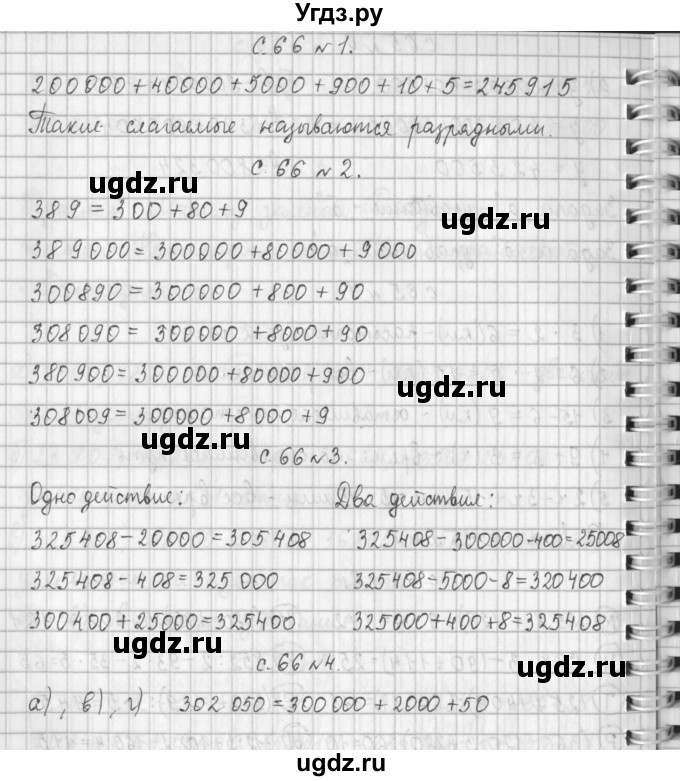 Угдз.ру
с. 66 № 1.
200000 + 40000 + 5000 + 900 + 10 + 5 = 245915
Такие слагаемые называются разрядными.
с. 66 № 2.
ugdz.ru
389 = 300 + 80 + 9
ugdz.ru
389000 = 300000 + 80000 + 9000
300890 = 300000 + 800 + 90
308090 = 300000 + 8000 + 90
380900 = 300000 + 80000 + 900
ugdz.ru
308009 = 300000 + 8000 + 9
ugdz.ru
с. 66 № 3.
Одно действие: Два действия:
325408 - 20000 = 305408 325408 - 300000 - 400 = 25008
325408 - 408 = 325 000 325408 - 5000 - 8 = 320400
300400 + 25000 = 325400 325000 + 400 + 8 = 325408
ugdz.ru
с. 66 № 4.
ugdz.ru
а), в), г) 302 050 = 300 000 + 2000 + 50
ugdz.ru